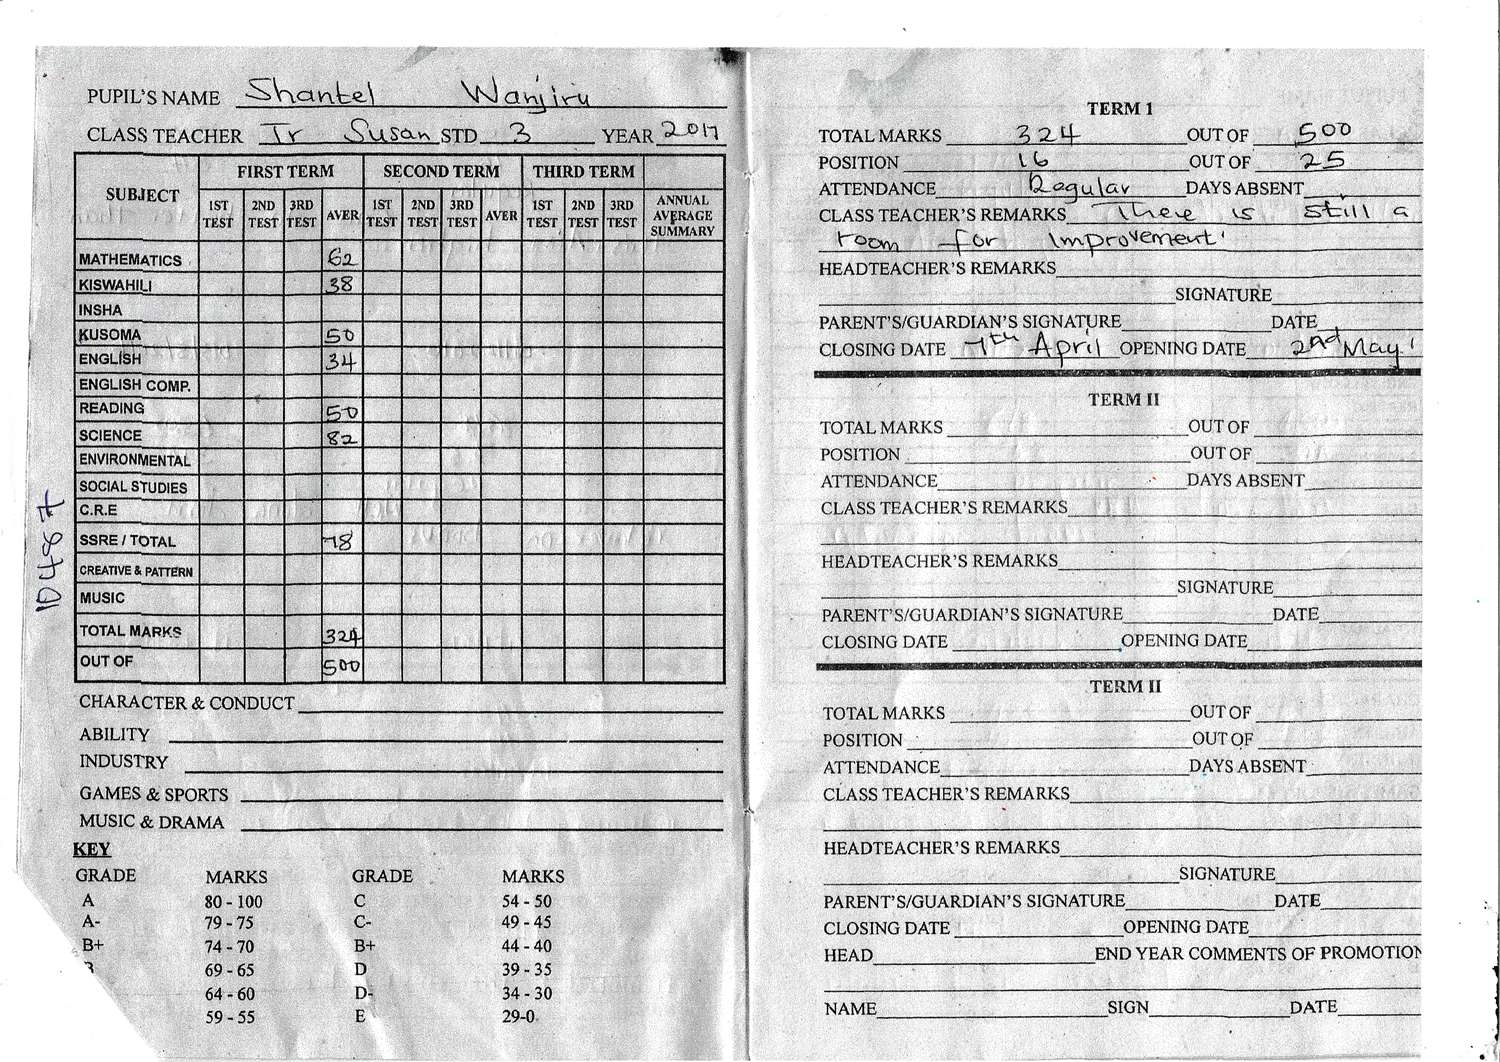 PUPIL'S NAME Shantel Wanjiru
CLASS TEACHER Tr Susan STD 3 YEAR 2017
SUBJECT FIRST TERM SECOND TERM THIRD TERM
1ST TEST 2ND TEST 3RD TEST AVER 1ST TEST 2ND TEST 3RD TEST AVER 1ST TEST 2ND TEST 3RD TEST ANNUAL AVERAGE SUMMARY
MATHEMATICS 62
KISWAHILI 38
INSHA
KUSOMA 50
ENGLISH 34
ENGLISH COMP.
READING 50
SCIENCE 82
ENVIRONMENTAL
SOCIAL STUDIES
C.R.E
SSRE / TOTAL 78
CREATIVE & PATTERN
MUSIC
TOTAL MARKS 324
OUT OF 500
CHARACTER & CONDUCT
ABILITY
INDUSTRY
GAMES & SPORTS
MUSIC & DRAMA
KEY
GRADE MARKS GRADE MARKS
A 80 - 100 C 54 - 50
A- 79 - 75 C- 49 - 45
B+ 74 - 70 B+ 44 - 40
69 - 65 D 39 - 35
64 - 60 D- 34 - 30
59 - 55 E 29-0
TERM 1
TOTAL MARKS 324 OUT OF 500
POSITION 16 OUT OF 25
ATTENDANCE Regular DAYS ABSENT
CLASS TEACHER'S REMARKS There is still a
room for improvement
HEADTEACHER'S REMARKS
SIGNATURE
PARENT'S/GUARDIAN'S SIGNATURE DATE
CLOSING DATE 7th April OPENING DATE 2nd May
TERM II
TOTAL MARKS OUT OF
POSITION OUT OF
ATTENDANCE DAYS ABSENT
CLASS TEACHER'S REMARKS
HEADTEACHER'S REMARKS
SIGNATURE
PARENT'S/GUARDIAN'S SIGNATURE DATE
CLOSING DATE OPENING DATE
TERM II
TOTAL MARKS OUT OF
POSITION OUT OF
ATTENDANCE DAYS ABSENT
CLASS TEACHER'S REMARKS
HEADTEACHER'S REMARKS
SIGNATURE
PARENT'S/GUARDIAN'S SIGNATURE DATE
CLOSING DATE OPENING DATE
HEAD END YEAR COMMENTS OF PROMOTION
NAME SIGN DATE